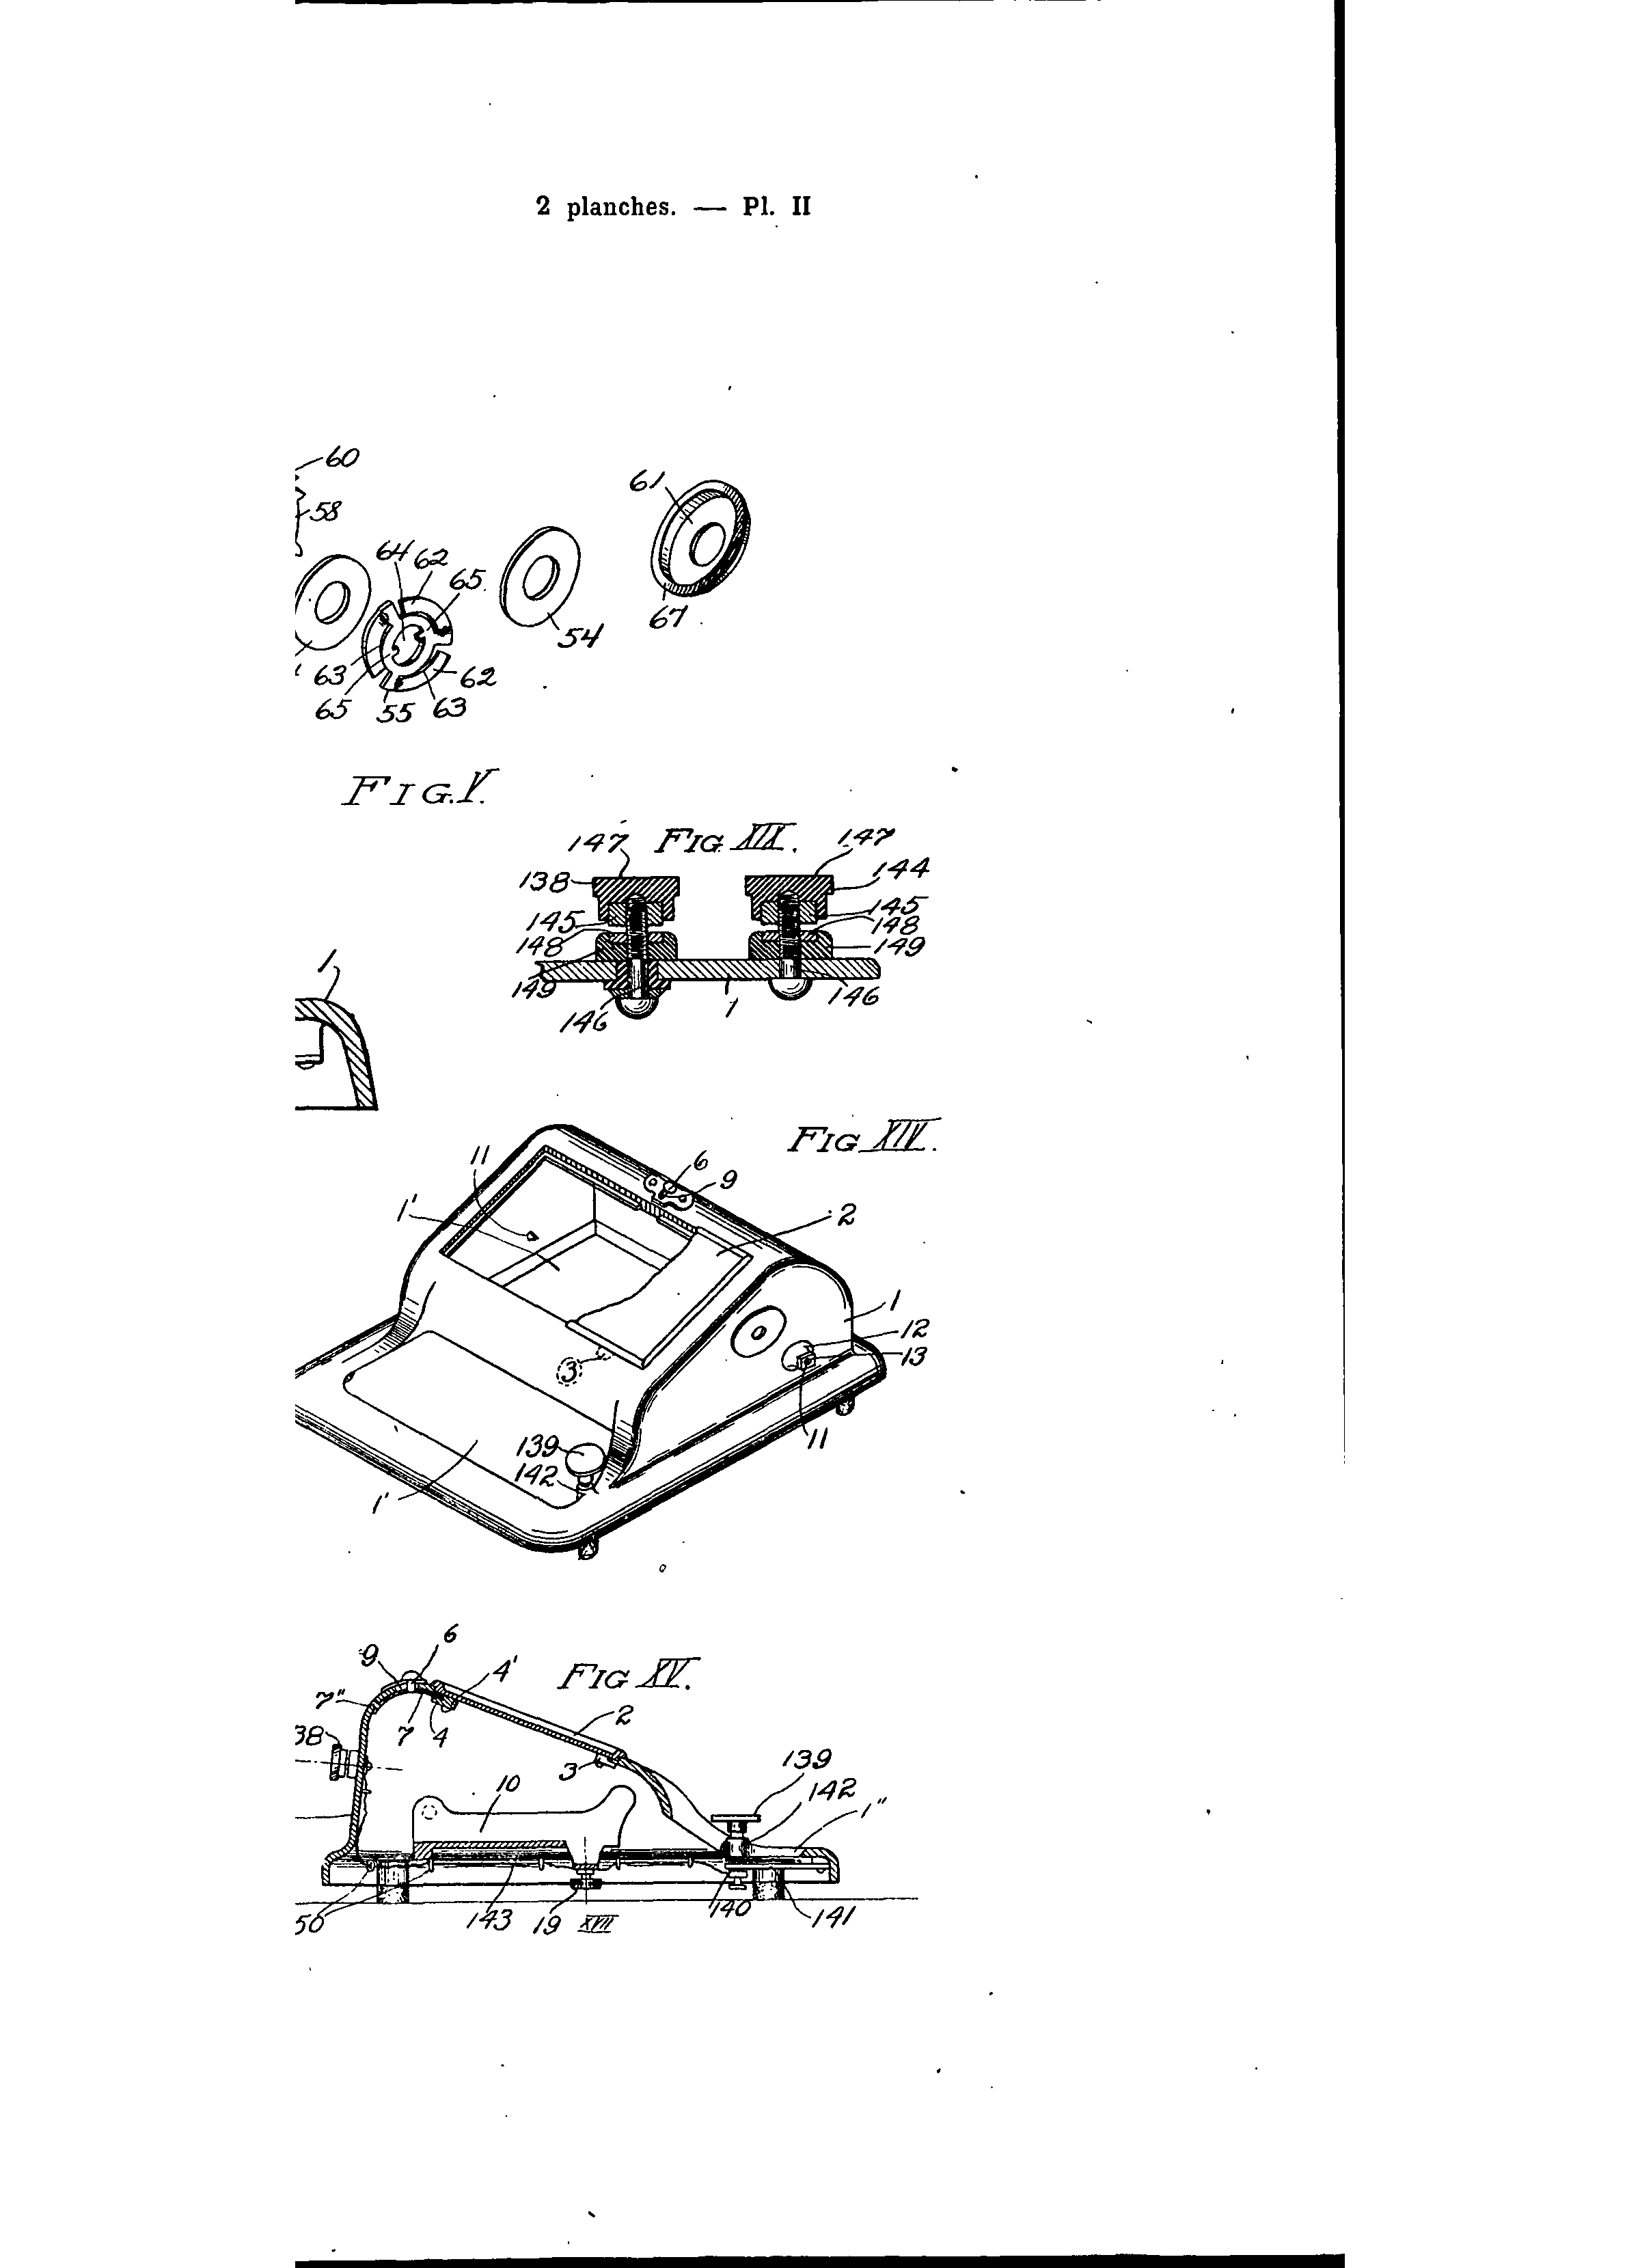 2 planches. — Pl. II
60
58
61
64 62
65
67
54
63
62
65 55 63
FIG. V.
147 FIG XIX. 147
138 144
145 145
148 148
149
1
149 146
146 1
FIG XIV.
11 6
9
1' 2
1
12
3 13
139 11
142
1'
6
9 4' FIG XV.
7"
7 4 2
38
3 139
10 142
1"
50 143 19 XVII 140 141